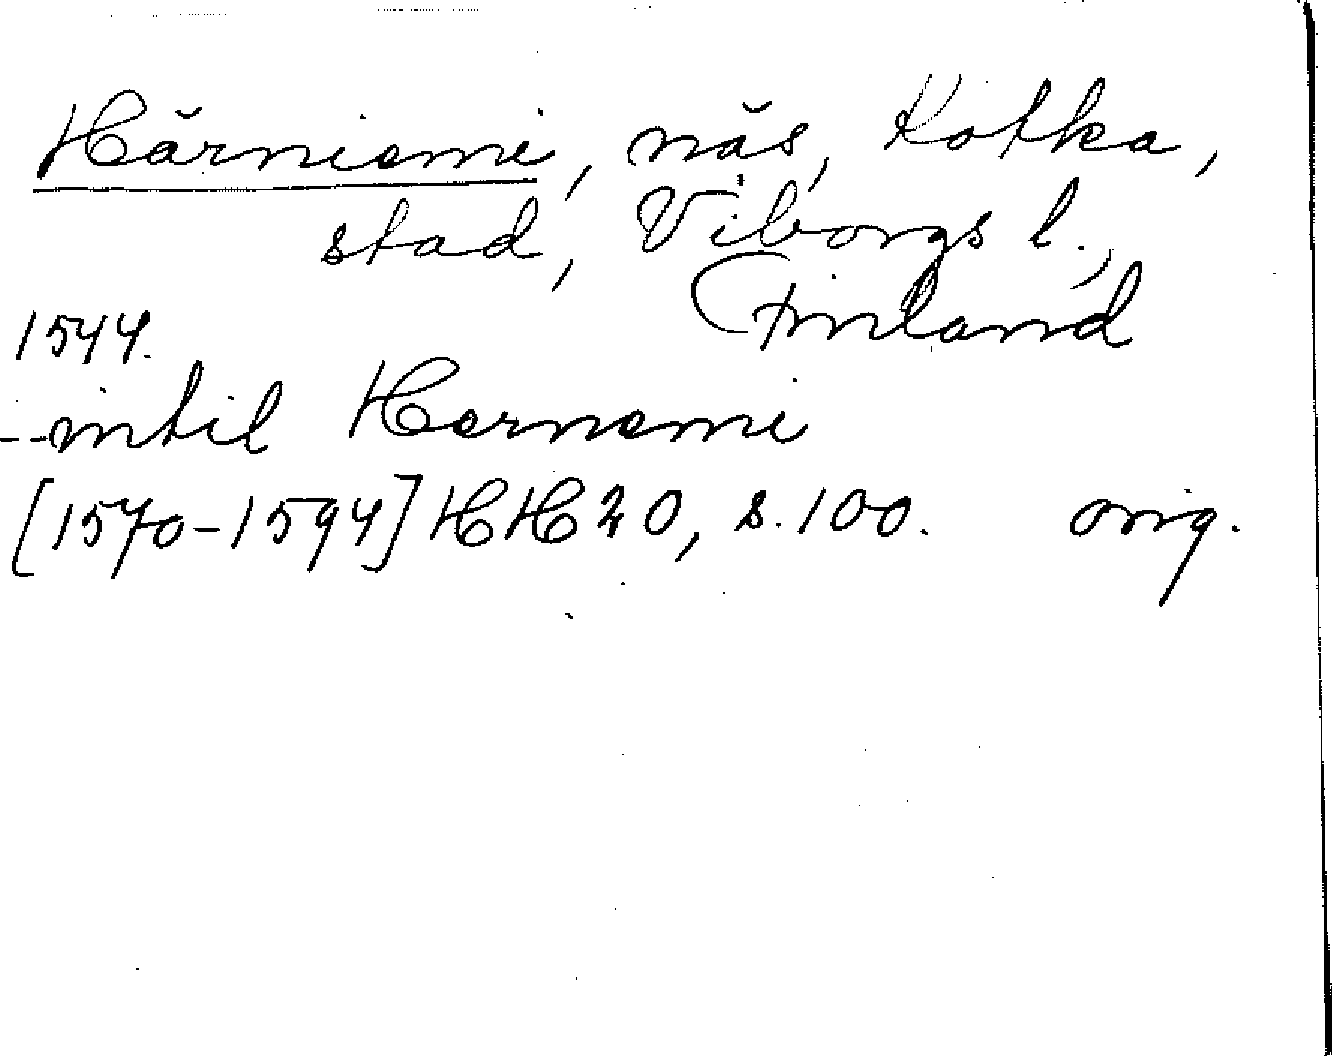 Härniemi, näs, Kotka,
stad, Viborgs l.,
Finland
1544.
--intil Hernemi
[1570-1594] HH 20, s. 100. orig.